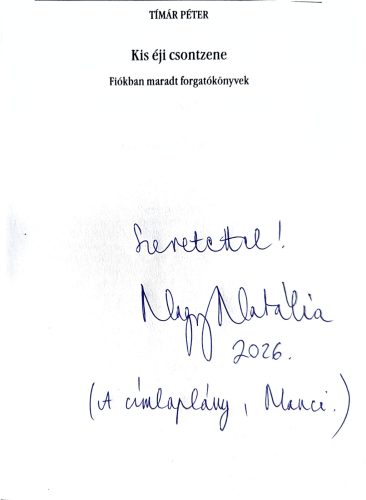 TÍMÁR PÉTER
Kis éji csontzene
Fiókban maradt forgatókönyvek
Szeretettel!
Nagy Natália
2026.
(A címlaplány, Manci.)